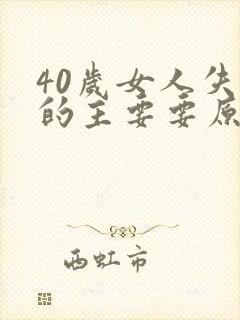 40岁女人失
的主要要原
西虹市